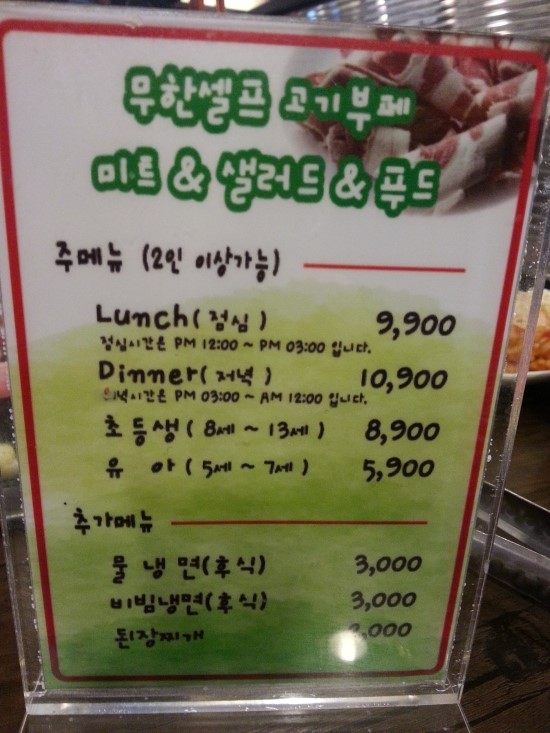 무한셀프 고기부페
미트 & 샐러드 & 푸드
주메뉴 (2인 이상가능)
Lunch(점심) 9,900
점심시간은 PM 12:00 ~ PM 03:00 입니다.
Dinner(저녁) 10,900
저녁시간은 PM 03:00 ~ AM 12:00 입니다.
초등생(8세 ~ 13세) 8,900
유 아(5세 ~ 7세) 5,900
추가메뉴
물 냉 면(후식) 3,000
비빔냉면(후식) 3,000
된장찌개